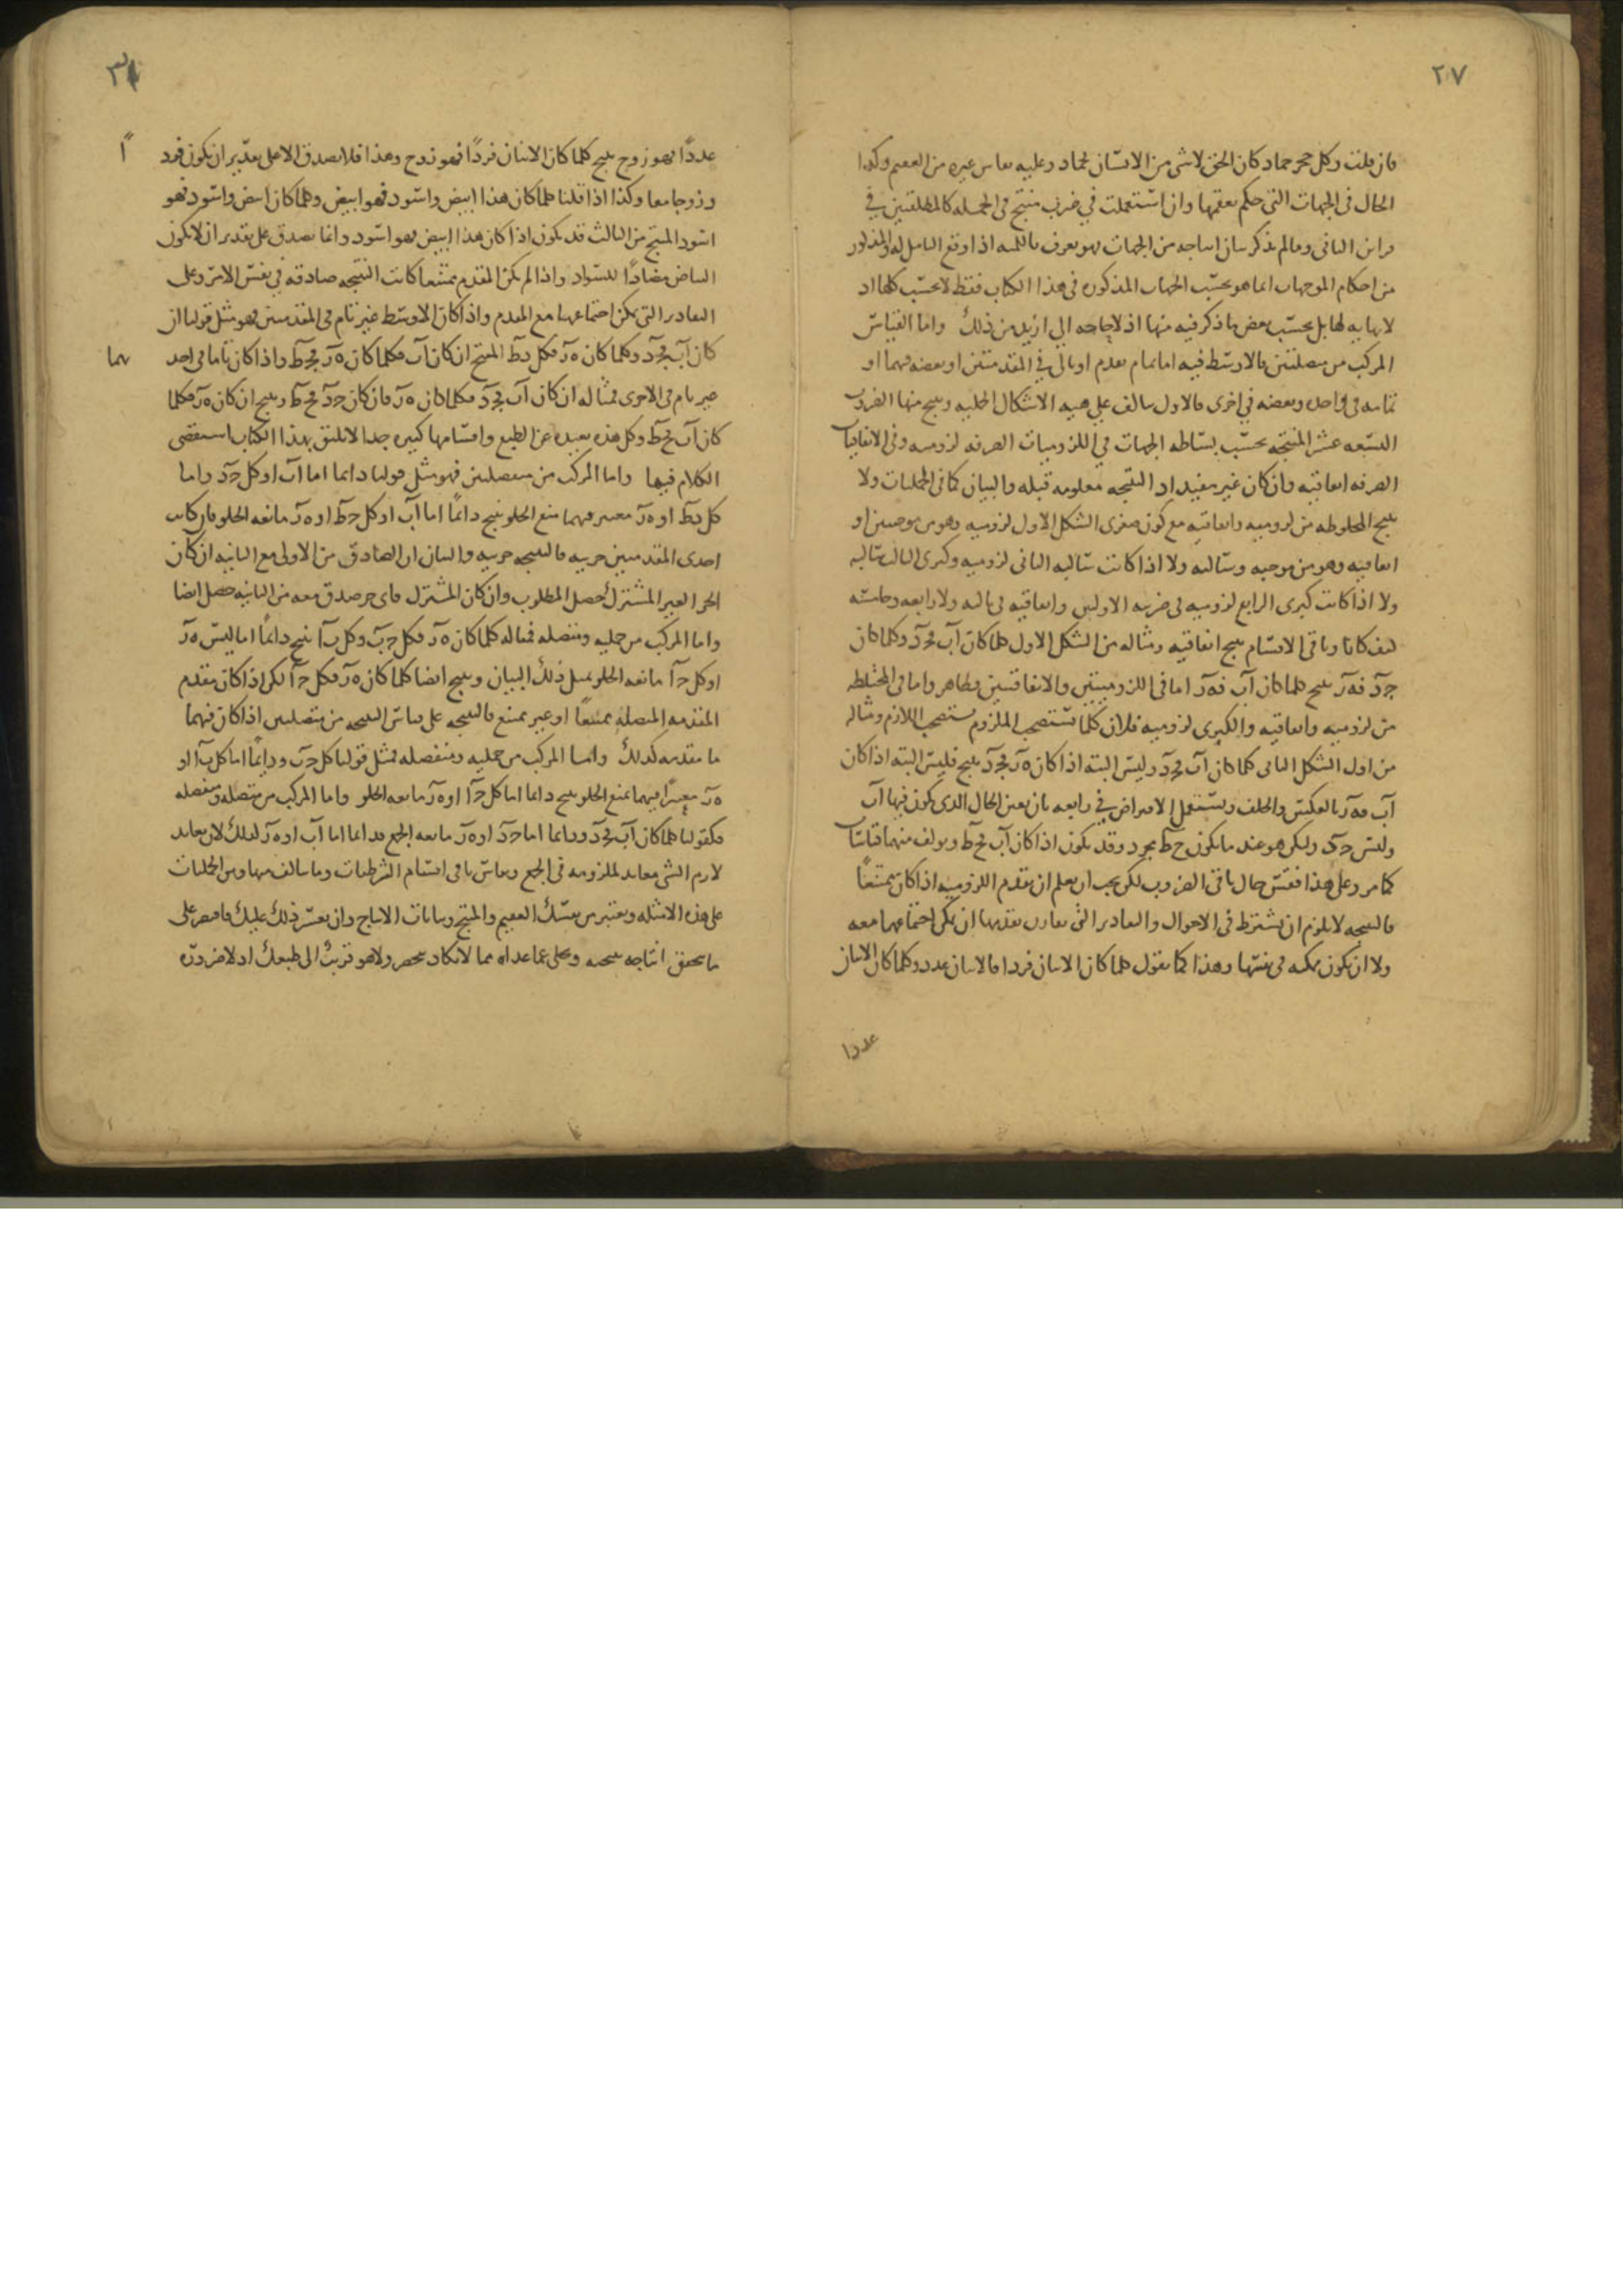 ٢٧
فان قلت وكل حجر جماد كان الحق لا شى من الانسان بجماد وعليه يقاس غيره من العقيم وكذا
الحال فى الجهات التى حكم بعقمها وان استعملت في ضرب منتج فى الجملة كالمطلقتين في
قراين الثانى ومالم يذكر بيان انتاجه من الجهات فهو يعرف باللمية اذا اوقع التامل له والمذكور
من احكام الموجهات انما هو بحسب الجهات المذكورة فى هذا الكتاب فقط لا بحسب كلها اد
لا نهاية لها بل بحسب بعض ما ذكر فيه منها اذ لا حاجة الى ازيد من ذلك واما القياس
المركب من متصلتين فالاوسط فيه اما تمام مقدم او تالى في المقدمتين او بعضه فيهما او
تمامه فى واحدة وبعضه في اخرى فالاول يتالف على هيئة الاشكال الحملية وينتج منها الضروب
التسعة عشر المنتجة بحسب بساطة الجهات في اللزوميات الصرفة لزومية وفى الاتفاقيات
الصرفة اتفاقية وان كان غير مفيد اذ النتيجة معلومة قبله والبيان كما فى الحمليات ولا
ينتج المخلوطة من لزومية واتفاقية مع كون صغرى الشكل الاول لزومية وهو من موجبتين او
اتفاقية وهو من موجبة وسالبة ولا اذا كانت سالبة الثانى لزومية وكبرى الثالث سالبة
ولا اذا كانت كبرى الرابع لزومية فى ضربيه الاولين واتفاقية فى ثالثه ولا رابعه وخامسه
كيف كانا وباقى الاقسام ينتج اتفاقية ومثاله من الشكل الاول كلما كان آب فجد وكلما كان
جد فهز ينتج كلما كان آب فهز اما فى اللزوميتين والاتفاقيتين فظاهر واما فى المختلطة
من لزومية واتفاقية والكبرى لزومية فلان كلما يستصحب الملزوم يستصحب اللازم ومثاله
من اول الشكل الثانى كلما كان آب فجد وليس البتة اذا كان هز فجد ينتج فليس البتة اذا كان
آب فهز بالعكس والخلف ويستعمل الافتراض في رابعه بان يعين الحال الذى يكون فيها آب
وليس جد وليكن هو عند ما يكون حط فجد وقد يكون اذا كان آب فحط ويولف منهما قياسا
كما مر وعلى هذا فقس حال باقى الضروب لكن يجب ان يعلم ان مقدم اللزومية اذا كان ممتنعًا
فالنتيجة لا يلزم ان يشترط فى الاحوال والتقادير التى تقارن مقدمها ان يمكن اجتماعها معه
ولا ان يكون ممكنة فى نفسها وهذا كما يقول كلما كان الانسان فردا فالانسان عدد وكلما كان الانسان
عددا
عددًا فهو زوج ينتج كلما كان الانسان فردًا فهو زوج وهذا فلا يصدق الا على تقدير ان يكون فرد
اً
وزوجا معا وكذا اذا قلنا كلما كان هذا ابيض واسود فهو ابيض وكلما كان ابيض واسود فهو
اسود المنتج من الثالث قد يكون اذا كان هذا ابيض فهو اسود وانما يصدق على تقدير ان لا يكون
البياض مضادًا للسواد واذا لم يكن المقدم ممتنعا كانت النتيجة صادقة في نفس الامر وعلى
التقادير التى يمكن اجتماعها مع المقدم واذا كان الاوسط غير تام فى المقدمتين فهو مثل قولنا ان
كان آب فجد وكلما كان هز فكل دط المنتج ان كان آب فكلما كان هز فجط واذا كان تاما فى احد
يهما
غير تام فى الاخرى فمثاله ان كان آب فجد فكلما كان هز فان كان جد فحط وينتج ان كان هز فكلما
كان آب فحط وكل هذه بعيدة عن الطبع واقسامها كثيرة جدا لا يليق بهذا الكتاب استقصى
الكلام فيها واما المركب من منفصلتين فهو مثل قولنا دايما اما آب او كل جد واما
كل دط او هز معتبر فيهما منع الخلو ينتج دائمًا اما آب او كل جط او هز مانعة الخلو فان كانت
احدى المقدمتين جزيية فالنتيجة جزيية والبيان ان الصادق من الاولى مع الثانية ان كان
الجزء الغير المشترك حصل المطلوب وان كان المشترك فاى جزء صدق معه من الثانية حصل ايضا
واما المركب من حملية ومتصلة فمثاله كلما كان هز فكل جب وكل بآ ينتج دائمًا اما ليس هز
او كل جآ مانعة الخلو بمثل ذلك البيان وينتج ايضا كلما كان هز فكل جآ لكن اذا كان مقدم
المقدمة المتصلة ممتنعًا او غير ممتنع فالنتيجة على قياس النتيجة من متصلتين اذا كان فيهما
ما مقدمه كذلك واما المركب من حملية ومنفصلة فمثل قولنا كل جب ودايمًا اما كل بآ او
هز معتبرًا فيهما بمنع الخلو ينتج دايما اما كل جآ او هز مانعة الخلو واما المركب من متصلة ومنفصلة
فكقولنا كلما كان آب فجد ودايما اما جد او هز مانعة الجمع فدايما اما آب او هز كذلك لان معاند
لازم الشى معاند لملزومه فى الجمع وقياس باقى اقسام الشرطيات وما يتالف منها ومن الحمليات
على هذه الامثلة ويعتبر من نفسك العقيم والمنتج وبيانات الانتاج وان تعسر ذلك عليك فاقتصر على
ما تحقق انتاجه بصحته وتخلى عما عداه مما لا تكاد تنحصر ولا هو قريب الى طبعك اذ لا ضرورة